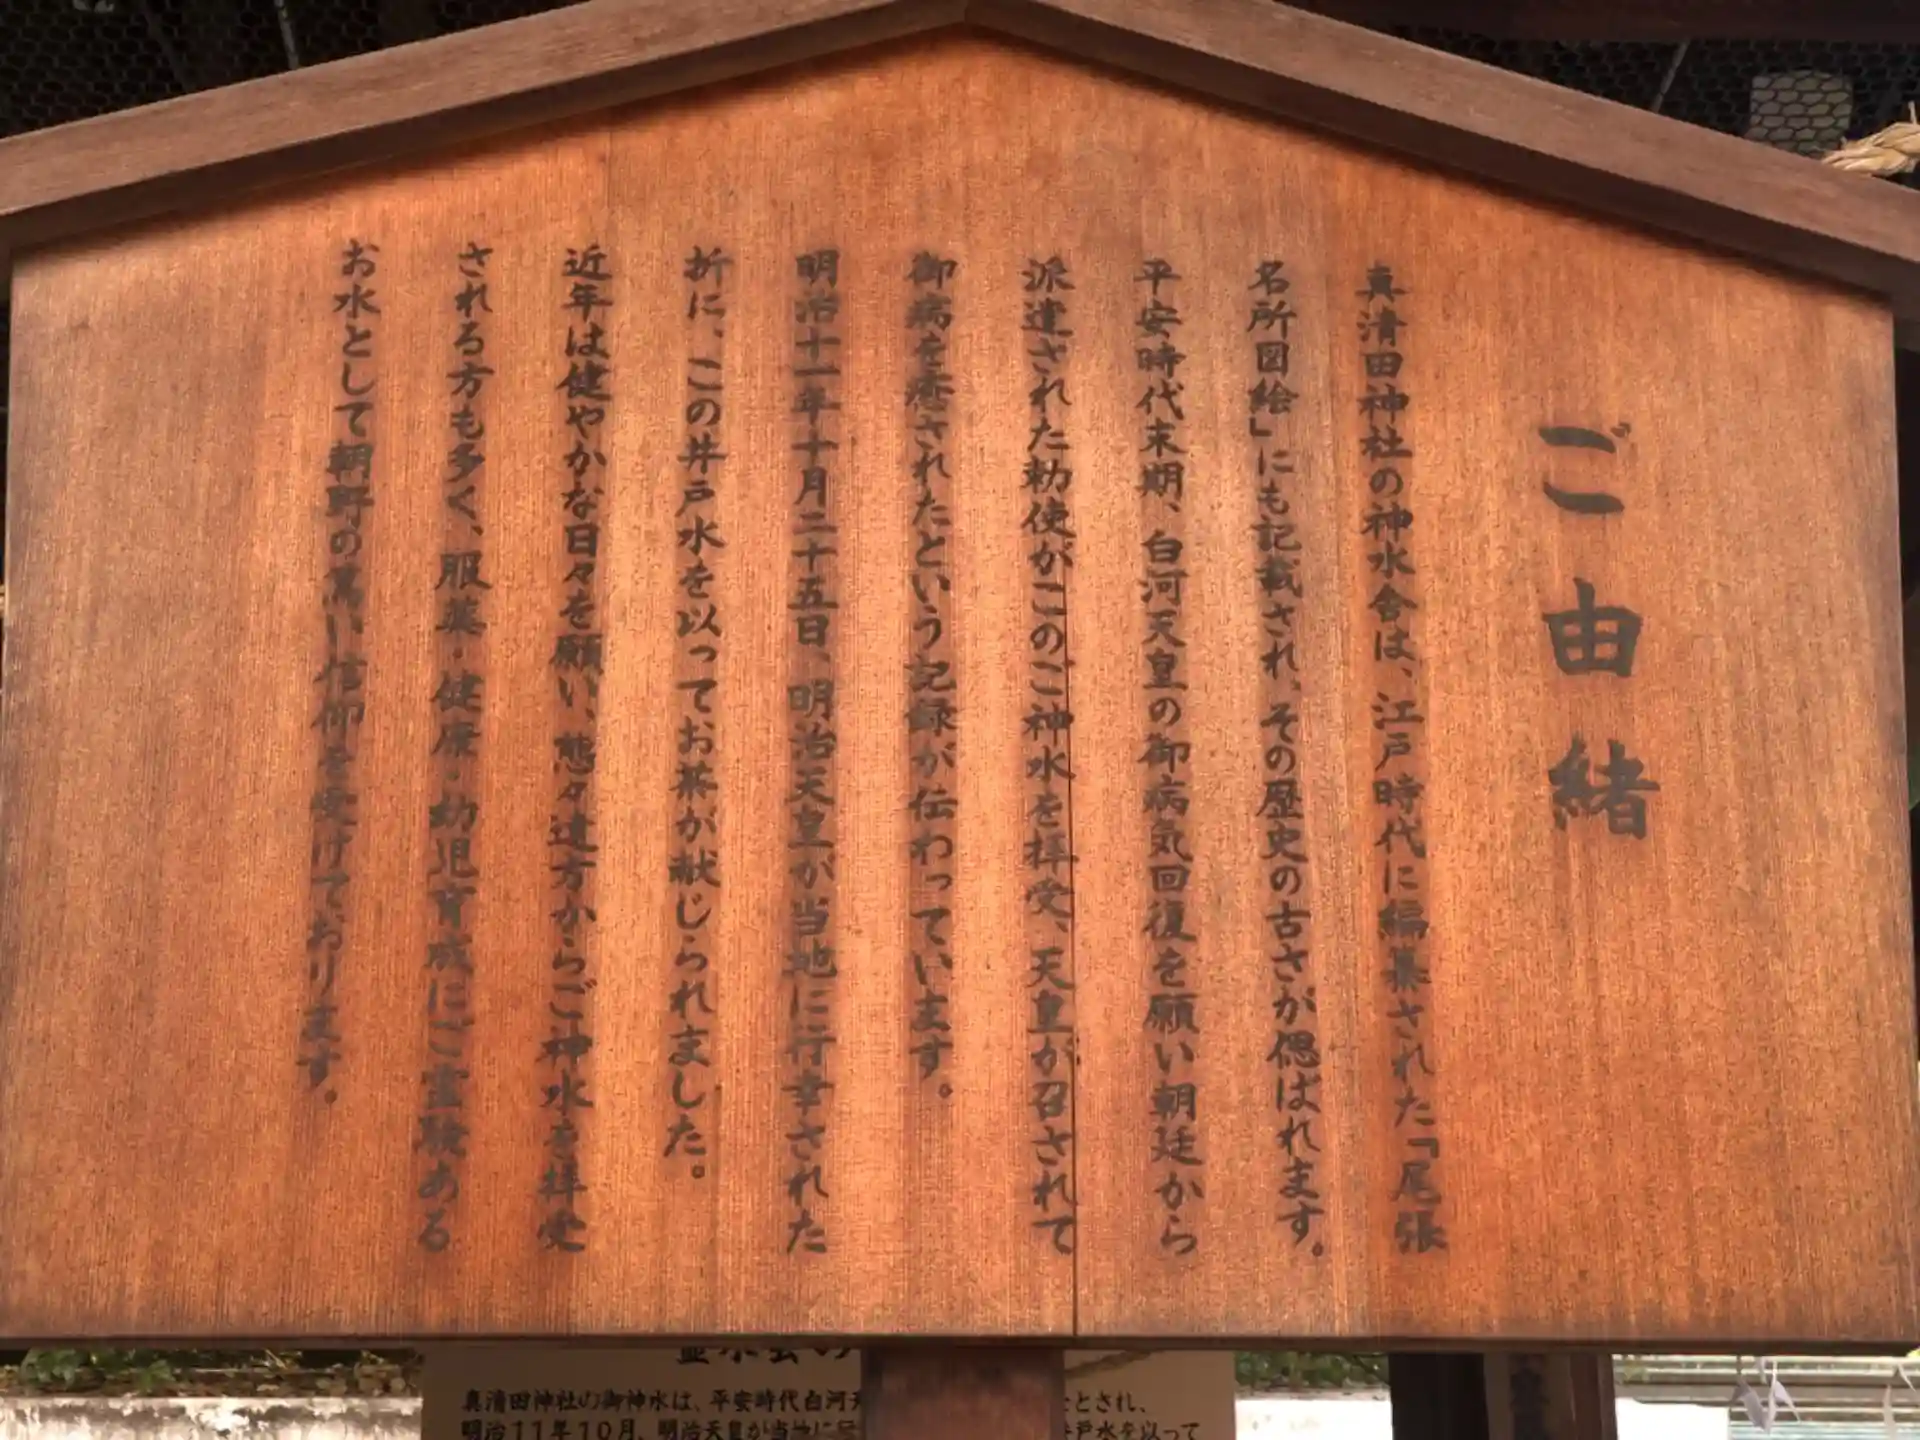 ご由緒
真清田神社の神水舎は、江戸時代に編集された『尾張
名所図絵』にも記載され、その歴史の古さが偲ばれます。
平安時代末期、白河天皇の御病気回復を願い朝廷から
派遣された勅使がこのご神水を拝受、天皇が召されて
御病を癒されたという記録が伝わっています。
明治十一年十月二十五日、明治天皇が当地に行幸された
折に、この井戸水を以ってお茶が献じられました。
近年は健やかな日々を願い、態々遠方からご神水を拝受
される方も多く、服薬・健康・幼児育成にご霊験ある
お水として朝野の篤い信仰を受けております。
真清田神社の御神水は、平安時代白河天
とされ、
明治11年10月、明治天皇が当地に行
戸水を以って